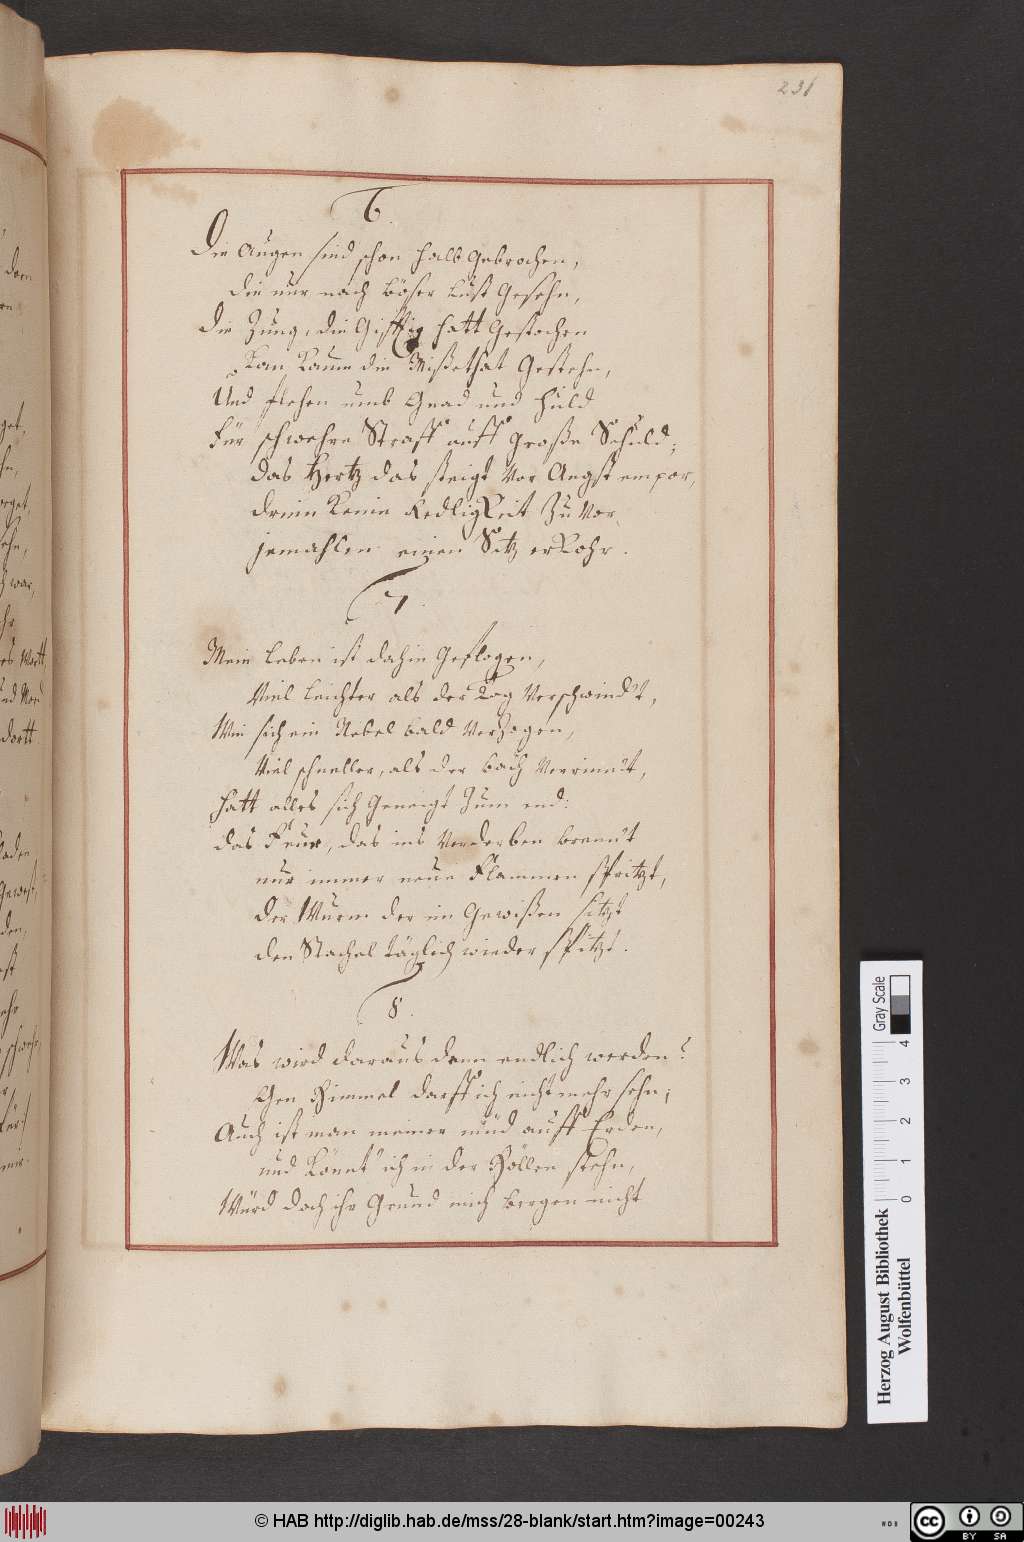 231
6.
Die Augen sind schon halb gebrochen,
die nur nach böser Lust gesehn,
Die Zung, die gifftig hatt gestochen
Kan kaum die Mißethat gestehn,
Und flehen umb Gnad und Huld
Für schwehre Straff auff große Schuld;
das Hertz das steigt vor Angst empor,
drein keine Redligkeit zu vor
jemahlen einen Sitz erkohr.
7.
Mein Leben ist dahin geflogen,
viel leichter als der Tag verschwindt,
Wie sich ein Nebel bald verzogen,
viel schneller, als der bach verrinnt,
hatt alles sich geneigt zum end:
das Feur, das ins verderben brennt
nur immer neue Flammen spritzt,
der Wurm der im Gewißen sitzt
den Stachel täglich wieder spitzt.
8.
Was wird daraus denn endlich werden?
Gen Himmel darff ich nicht mehr sehn;
Auch ist man meiner müd auff Erden,
und könnt ich in der Höllen stehn,
Würd doch ihr Grund mich bergen nicht
Herzog August Bibliothek
Wolfenbüttel
0 1 2 3 4
Gray Scale
© HAB http://diglib.hab.de/mss/28-blank/start.htm?image=00243
cc
BY SA